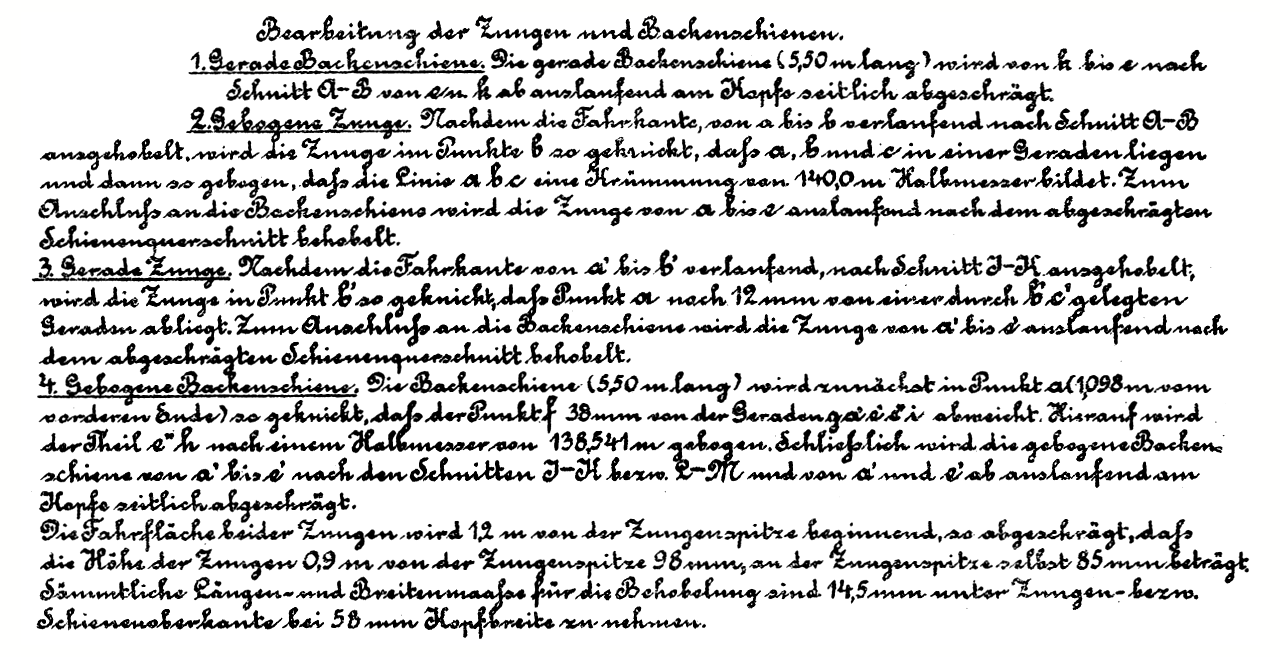 Bearbeitung der Zungen und Backenschienen.
1. Gerade Backenschiene. Die gerade Backenschiene (5,50 m lang) wird von k bis e nach
Schnitt A-B von e u. k ab auslaufend am Kopfe seitlich abgeschrägt.
2. Gebogene Zunge. Nachdem die Fahrkante, von a bis b verlaufend nach Schnitt A-B
ausgehobelt, wird die Zunge im Punkte b so geknickt, daſs a, b und c in einer Geraden liegen
und dann so gebogen, daſs die Linie a b c eine Krümmung von 140,0 m Halbmesser bildet. Zum
Anschluſs an die Backenschiene wird die Zunge von a bis e auslaufend nach dem abgeschrägten
Schienenquerschnitt behobelt.
3. Gerade Zunge. Nachdem die Fahrkante von a' bis b' verlaufend, nach Schnitt J-K ausgehobelt,
wird die Zunge in Punkt b' so geknickt, daſs Punkt a noch 12 mm von einer durch b' c' gelegten
Geraden abliegt. Zum Anschluſs an die Backenschiene wird die Zunge von a' bis e' auslaufend nach
dem abgeschrägten Schienenquerschnitt behobelt.
4. Gebogene Backenschiene. Die Backenschiene (5,50 m lang) wird zunächst in Punkt a (1,098 m vom
vorderen Ende) so geknickt, daſs der Punkt f 38 mm von der Geraden g a' e' e'' i abweicht. Hierauf wird
der Theil e'' h nach einem Halbmesser von 138,541 m gebogen. Schlieſslich wird die gebogene Backen-
schiene von a' bis e' nach den Schnitten J-K bezw. L-M und von a' und e' ab auslaufend am
Kopfe seitlich abgeschrägt.
Die Fahrfläche beider Zungen wird 1,2 m von der Zungenspitze beginnend, so abgeschrägt, daſs
die Höhe der Zungen 0,9 m von der Zungenspitze 98 mm, an der Zungenspitze selbst 85 mm beträgt.
Sämmtliche Längen- und Breitenmaaſse für die Behobelung sind 14,5 mm unter Zungen- bezw.
Schienenoberkante bei 58 mm Kopfbreite zu nehmen.